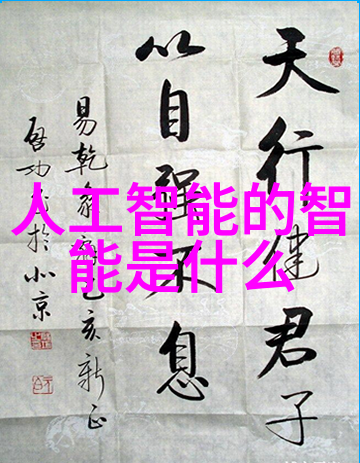 人工智能的智
能是什么
天行健君子
以自强不息
易乾 己亥新正
启功书於北京